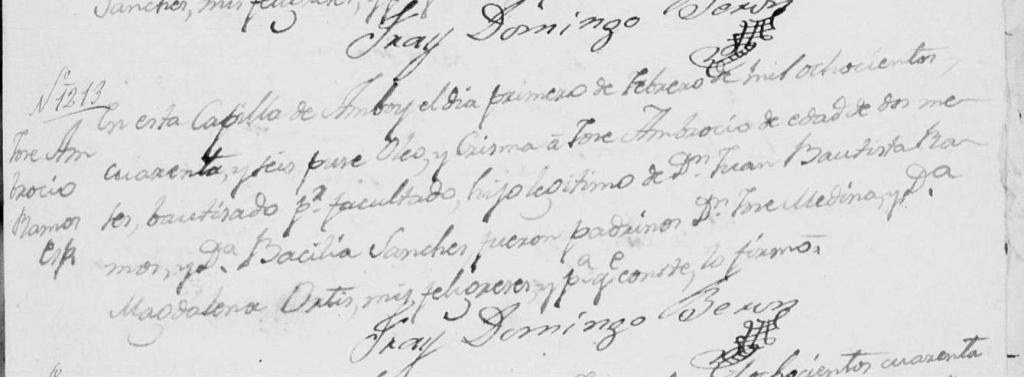 Sanches, mis feligreses, y p.ª q.e
Fray Domingo Beron
Nº 1213
Jose Am
brocio
Ramos
Esp.
En esta Capilla de Amboy el dia primero de Febrero de mil ochocientos,
cuarenta, y seis puse Oleo, y Crisma â Jose Ambrocio de edad de dos me-
ses, bautisado p.r facultado, hijo legitimo de D.n Juan Bautista Ra-
mos, y D.ª Bacilia Sanches, fueron padrinos D.n Jose Medina, y D.ª
Magdalena Ortis, mis feligreses, y p.ª q.e conste, lo firmo.
Fray Domingo Beron
ochocientos cuarenta